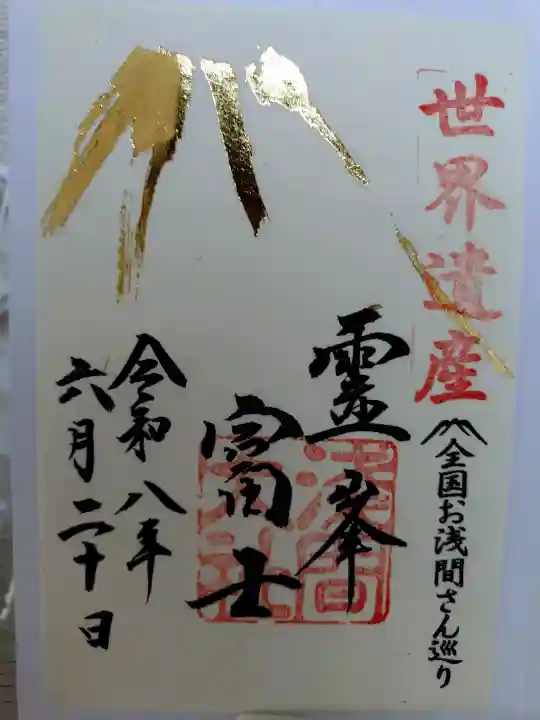 世界遺産
全国お浅間さん巡り
霊峯
富士
浅間大社
令和八年
六月二十日